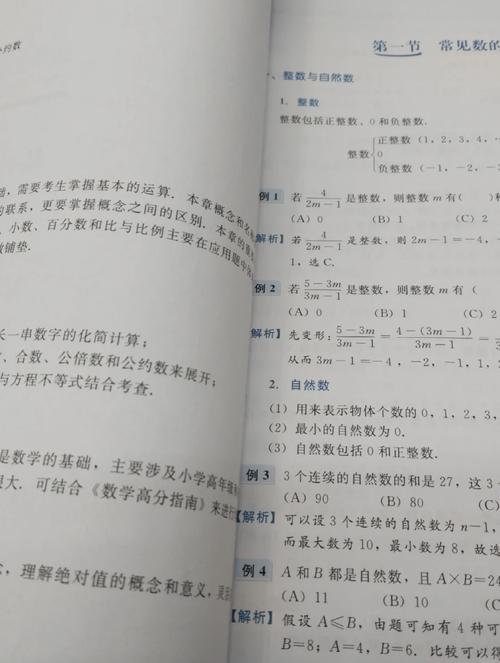 约数
需要考生掌握基本的运算. 本章概念和名
的联系, 更要掌握概念之间的区别. 本章的重
小数、百分数和比与比例主要在应用题中
铺垫.
长一串数字的化简计算;
、合数、公倍数和公约数来展开;
与方程不等式结合考查.
是数学的基础, 主要涉及小学高年级
很大. 可结合《数学高分指南》来进行
, 理解绝对值的概念和意义, 灵活
第一节 常见数的
、整数与自然数
1. 整数
整数包括正整数、0 和负整数.
整数{正整数 (1, 2, 3, 4,
0
负整数 (-1, -2, -
例 1 若 4/(2m-1) 是整数, 则整数 m 有( )
(A) 0 (B) 1 (C) 2
解析】若 4/(2m-1) 是整数, 则 2m-1=-4,
1, 选 C.
例 2 若 (5-3m)/(3m-1) 是整数, 则整数 m 有 (
(A) 0 (B) 1 (C)
解析】先变形: (5-3m)/(3m-1) = (4-(3m-1))/(3m-1) =
从而 3m-1=-4, -2, -1, 1, 2
2. 自然数
(1) 用来表示物体个数的 0, 1, 2, 3,
(2) 最小的自然数为 0.
(3) 自然数包括 0 和正整数.
例 3 3 个连续的自然数的和是 27, 这 3
(A) 90 (B) 80 (C)
【解析】可以设 3 个连续的自然数为 n-1,
而最大数为 10, 最小数为 8, 故选
例 4 A 和 B 都是自然数, 且 A×B=24
(A) 11 (B) 10 (C)
【解析】假设 A≤B, 由题可知有 4 种可
B=8; A=4, B=6. 比较可以得